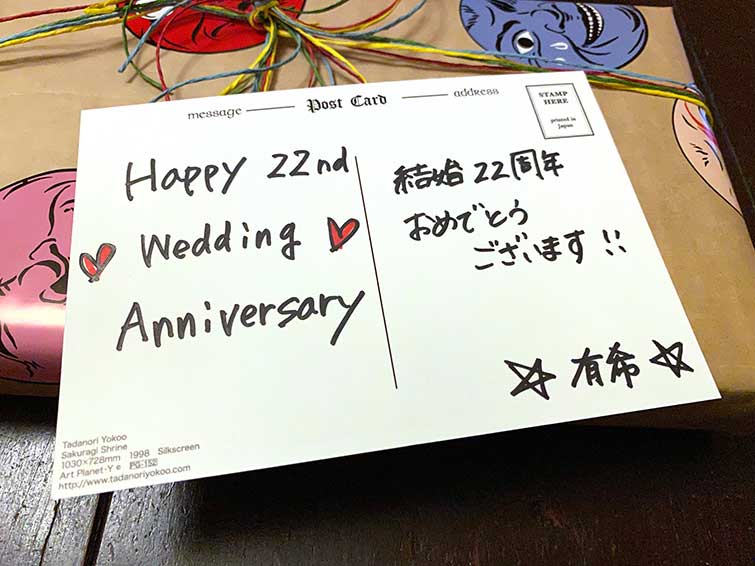 message Post Card address
STAMP
HERE
printed in
Japan
Happy 22nd
Wedding
Anniversary
結婚22周年
おめでとう
ございます!!
☆ 有希 ☆
Tadanori Yokoo
Sakuragi Shrine
1030×728mm 1998 Silkscreen
Art Planet・Y e PG-152
http://www.tadanoriyokoo.com